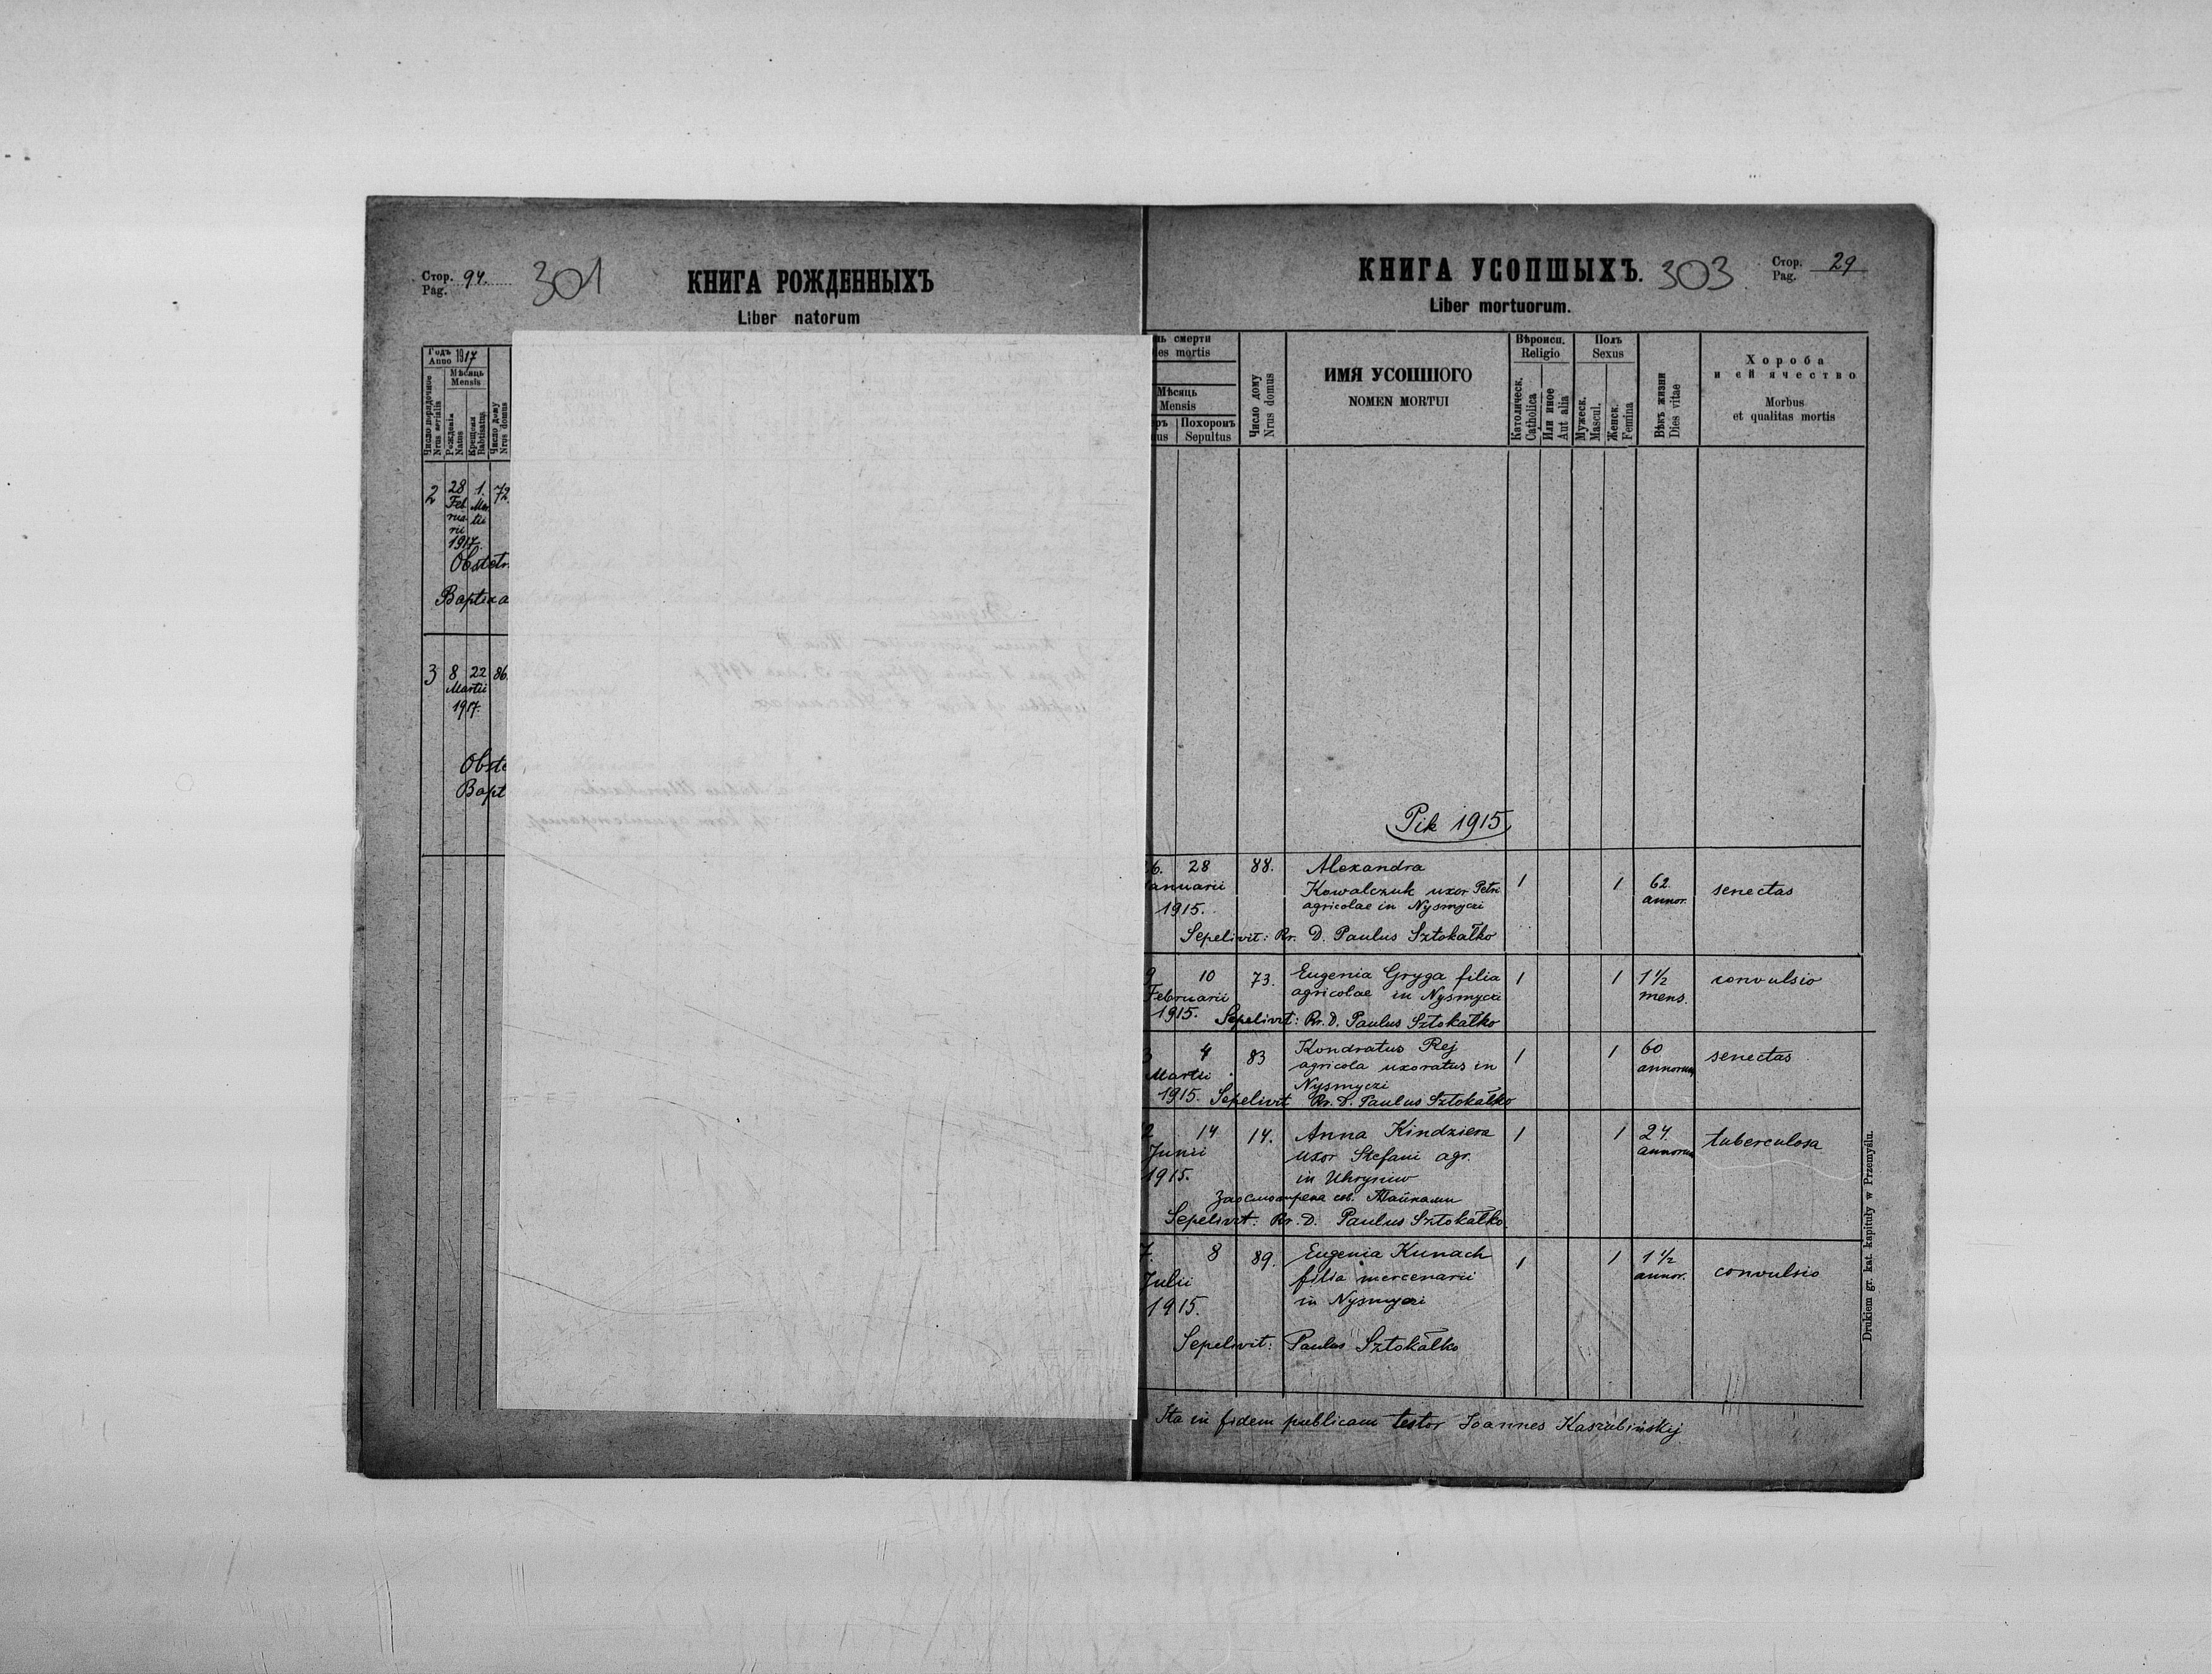 Стор. 94.
Pag.
301
КНИГА РОЖДЕННЫХЪ
Liber natorum
Годъ
Anno 1917
Мѣсяць
Mensis
Число порядочное
Nrus serialis
Рожденія
Natus
Крещенія
Babtisatus
Число дому
Nrus domus
2 28 1. 72.
Feb Mar
rua tii
rii
1917.
Obstetr
Baptiza
3 8 22 86.
Martii
1917.
Obste
Bapt
КНИГА УСОПШЫХЪ. 303
Стор. 29
Pag.
Liber mortuorum.
нь смерти
ies mortis
Мѣсяць
Mensis
ръ Похоронъ
us Sepultus
Число дому
Nrus domus
ИМЯ УСОПШОГО
NOMEN MORTUI
Вѣроисп.
Religio
Католическ.
Catholica
Или иное
Aut alia
Полъ
Sexus
Мужеск.
Mascul.
Женск.
Femina
Вѣкъ жизни
Dies vitae
Хороба
и єй ячество
Morbus
et qualitas mortis
Pik 1915
6. 28 88. Alexandra
anuarii Kowalczuk uxor Petri 1 1 62. senectas
1915. agricolae in Nysmyczi annor.
Sepelivit: Rr. D. Paulus Sztokałko
9 10 73. Eugenia Gryga filia 1 1 1½ convulsio
Februarii agricolae in Nysmyczi mens.
1915. Sepelivit: Rr. D. Paulus Sztokałko
3 4 83 Kondratus Rej 1 1 60 senectas
Martii agricola uxoratus in annorum
Nysmyczi
1915. Sepelivit Rr. D. Paulus Sztokałko
2 14 14. Anna Kindziera 1 1 24. tuberculosa
Junii uxor Stefani agr. annorum
1915. in Uhrynuw
Заосмотрена св. Тайнами
Sepelivit: Rr. D. Paulus Sztokałko
7. 8 89. Eugenia Kunach 1 1 1½ convulsio
Julii filia mercenarii annor.
1915. in Nysmyczi
Sepelivit: Paulus Sztokałko
Ita in fidem publicam testor Joannes Kaszubińskij
Drukiem gr. kat. kapituły w Przemyślu.